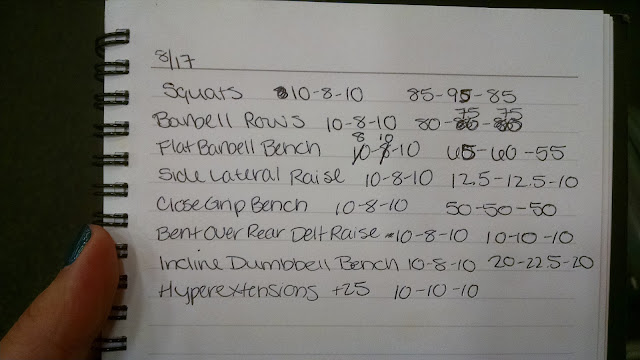 8/17
Squats 10-8-10 85-95-85
Barbell Rows 10-8-10 80-75-75
Flat Barbell Bench 8-10-10 65-60-55
Side Lateral Raise 10-8-10 12.5-12.5-10
Close Grip Bench 10-8-10 50-50-50
Bent Over Rear Delt Raise 10-8-10 10-10-10
Incline Dumbbell Bench 10-8-10 20-22.5-20
Hyperextensions +25 10-10-10